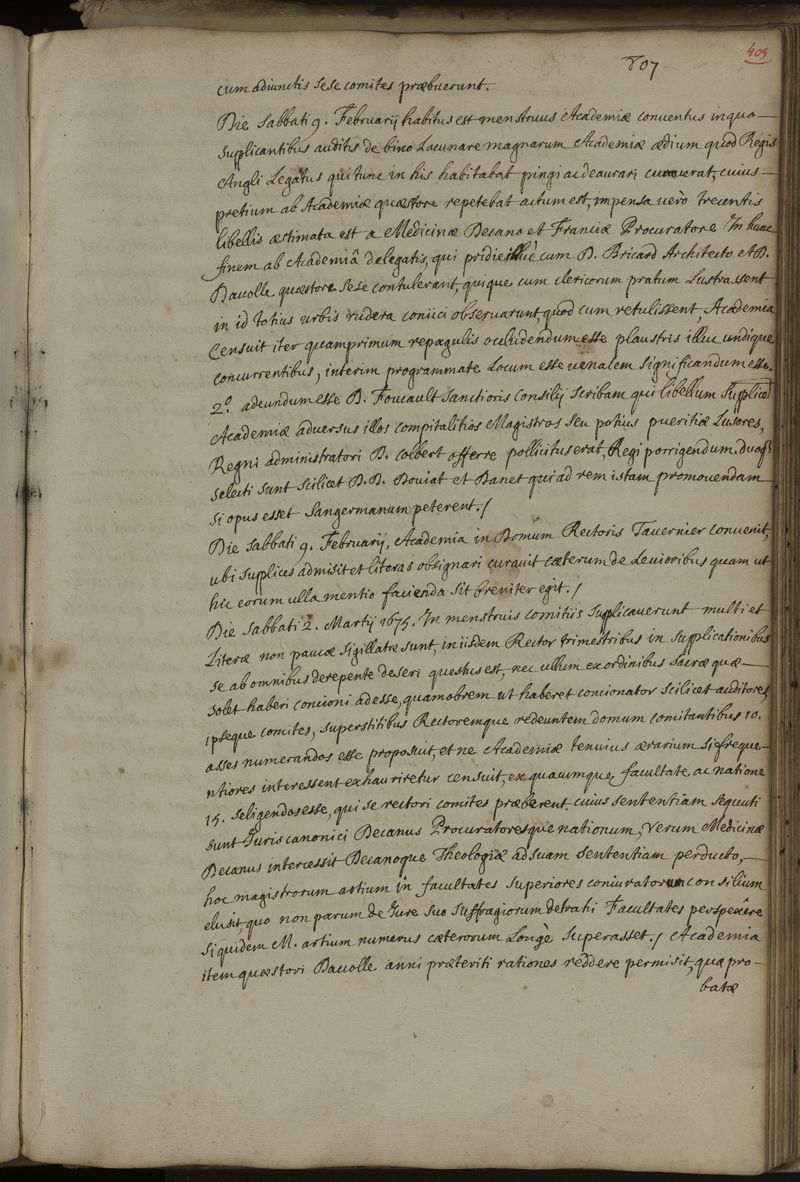 409
807
cum adiunctis sese comites præbuerunt.
Die Sabbati 9. Februarij habitus est menstruus Academiæ conuentus in quo
supplicantibus auditis de bino Lacunare magnarum Academiæ ædium quod Regis
Angli Legatus qui tunc in his habitabat pingi ac deaurari curauerat, cuius
pretium ab Academiæ quæstore repetebat actum est, impensa uerò trecentis
libellis æstimata est a Medicinæ Decano et Franciæ Procuratore In hunc
finem ab Academiâ delegatis, qui pridie illuc cum D. Bricard Architecto et D.
Dauolle quæstore sese contulerant, quique cum clericorum pratum Lustrassent
in id totius urbis rudera coniici obseruarunt, quod cum retulissent Academia
Censuit iter quamprimum repagulis occludendum esse plaustris illuc undique
concurrentibus, interim programmate Locum esse uenalem significandum esse.
2.º adeundum esse D. Foucault Sanctioris Consilij Scribam qui libellum supplicem
Academiæ aduersus illos compitalitios Magistros seu potius pueritiæ Lusores,
Regni administratori D. Colbert offerre pollicitus erat, Regi porrigendum. duoqȝ
selecti sunt scilicet D.D. Bouiat et Danet qui ad rem istam promouendam
si opus esset Sangermanum peterent. /
Die Sabbati 9. Februarij, Academia in Domum Rectoris Tauernier conuenit,
ubi supplices admisit et literas obsignari curauit cæterum de Leuioribus quam ut
hic eorum ulla mentio facienda sit breuiter egit. /
Die Sabbati 2. Martij 1675. In menstruis comitiis supplicauerunt multi et
Literæ non paucæ sigillatæ sunt, in iisdem Rector trimestribus in supplicationibus
se ab omnibus derepente deseri questus est, nec ullum ex ordinibus sacræ quæ
solet haberi concioni adesse, quamobrem ut haberet concionator scilicet auditores,
ipseque comites, superstitibus Rectoremque redeuntem domum comitantibus 10.
asses numerandos esse proposuit, et ne Academiæ tenuius ærarium si freque-
ntiores interessent exhauriretur censuit, ex quacumque facultate ac natione
15. seligendos esse, qui se rectori comites præberent cuius sententiam sequuti
sunt Juris canonici Decanus Procuratoresque nationum, Verum Medicinæ
Decanus intercessit Decanoque Theologiæ ad suam sententiam perducto,
hoc magistrorum artium in facultates superiores coniuratorum consilium
elusit, quo non parum de Jure suo suffragiorum detrahi Facultates perspexêre
siquidem M. artium numerus cæterorum Longè superasset. / Academia
item quæstori Dauolle anni præteriti rationes reddere permisit, quæ pro-
batæ